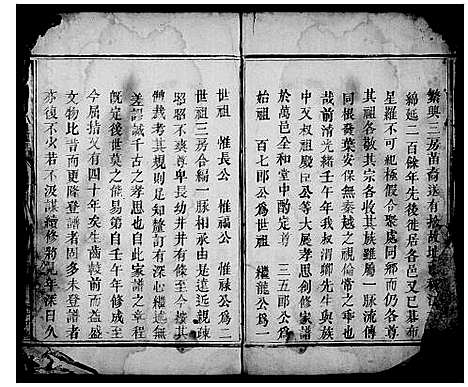 繁興三房苗裔迭有
綿延二百餘年先後徙居各邑又已碁布
星羅不可紀極假令聚處同鄉而仍各尊
其祖各敬其宗各收其族雖屬一脉流傳
同根發葉安保無秦越之視倫常之乖也
哉前清光緒壬午年我叔清卿先生與族
中叉叔祖慶臣公等大展孝思創修家譜
於萬邑全和堂中酌定 三五郎公爲
始祖 百七郎公爲世祖 繼龍公爲一
世祖 惟長公 惟福公 惟祿公爲二
世祖三房合編一脉相承由是遠近親疎
昭昭不爽尊卑長幼井井有條至今摟其
體裁考其規則足知釐訂有深心纘述無
差謬誠千古之孝思也自此家譜之章程
既定後世莫之能易第自壬午年修成至
今屈指又有四十年矣生齒較前而益盛
文物比昔而更隆登譜者固多未登譜者
亦復不少若不汲謀續修將見年深日久